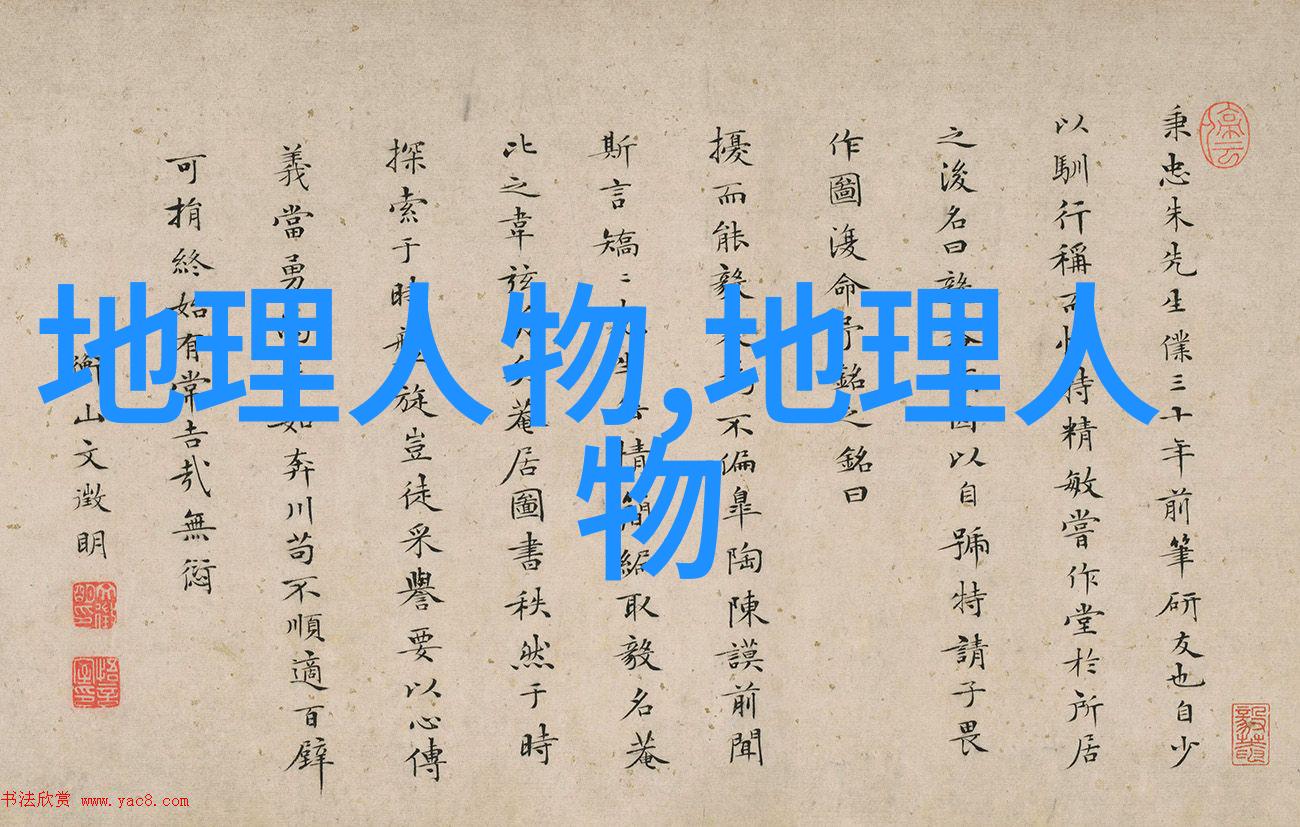 秉忠朱先生僕三十年前筆研友也自少
以馴行稱而特精敏嘗作堂於所居
之後名曰因以自號特請子畏
作圖復命予銘之銘曰
擾而能毅不偏皐陶陳謨前聞
斯言矯情簡取毅名菴
比之韋弦菴居圖書秩然于時
探索于時旋豈徒采譽要以心傳
義當勇如奔川苟不順適百
可捐終始有常吉哉無愆
衡山文徵明
停云
地理人物,地理人
物
书法欣赏 www.yac8.com